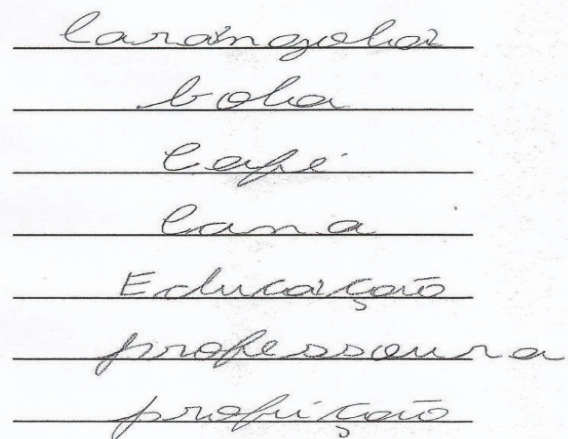 carangola
bola
café
cana
Educação
professoura
profição